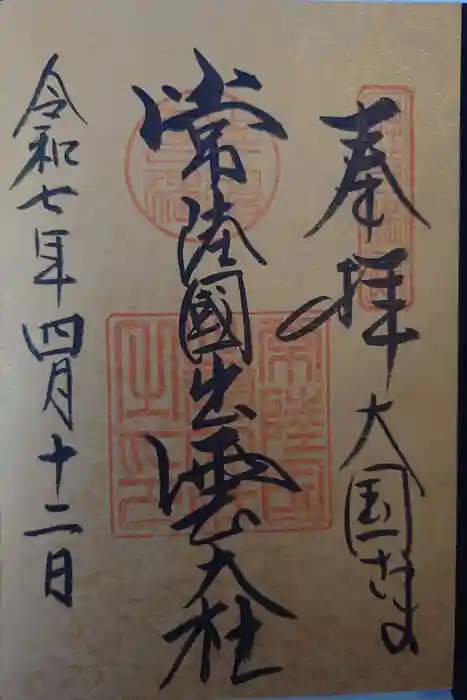 奉拝
大国さま
常陸國出雲大社
令和七年四月十二日